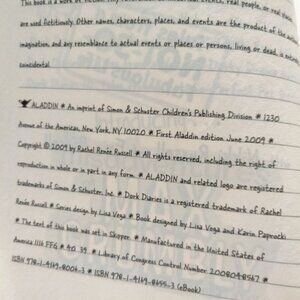 This book is a work of fiction. Any references to historical events, real people, or real places
are used fictitiously. Other names, characters, places, and events are the product of the author's
imagination, and any resemblance to actual events or places or persons, living or dead, is entirely
coincidental.
ALADDIN * An imprint of Simon & Schuster Children's Publishing Division * 1230
Avenue of the Americas, New York, NY 10020 * First Aladdin edition June 2009 *
Copyright © 2009 by Rachel Renée Russell * All rights reserved, including the right of
reproduction in whole or part in any form. * ALADDIN and related logo are registered
trademarks of Simon & Schuster, Inc. * Dork Diaries is a registered trademark of Rachel
Renée Russell * Series design by Lisa Vega * Book designed by Lisa Vega and Karin Paprocki
* The text of this book was set in Skippy. * Manufactured in the United States of
America 1116 FFG * 40 39 * Library of Congress Control Number 2008048567 *
ISBN 978-1-4169-8006-3 * ISBN 978-1-4169-8655-3 (eBook)